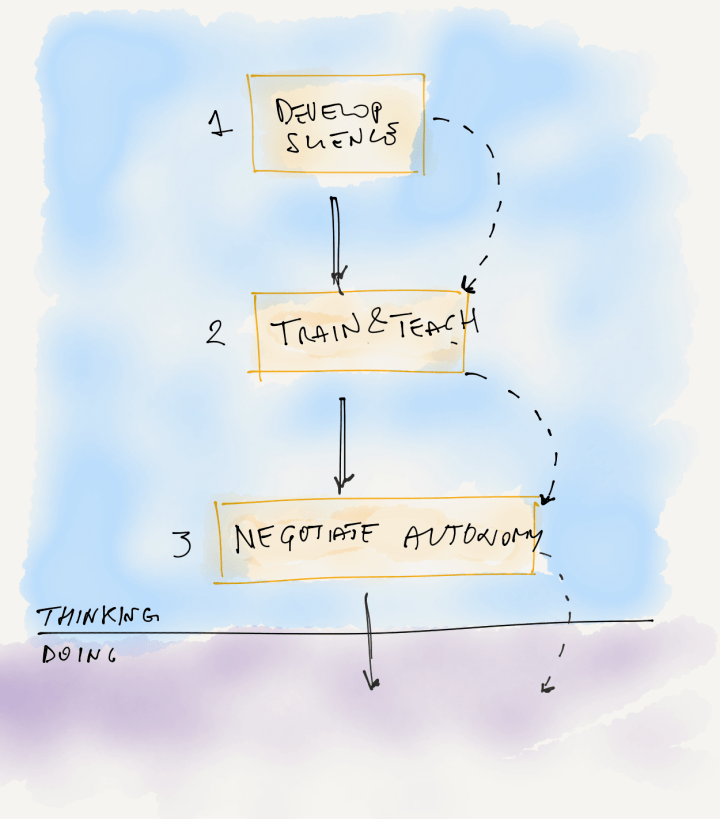 1
DEVELOP
SCIENCE
2
TRAIN & TEACH
3
NEGOTIATE AUTONOMY
THINKING
DOING